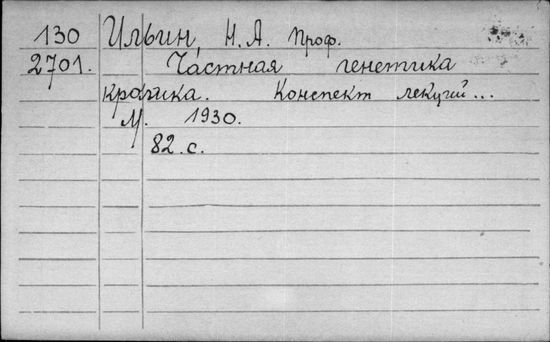 130 Ильин, Н. А. Проф.
2701. Частная генетика
кролика. Конспект лекций...
М. 1930.
82 с.